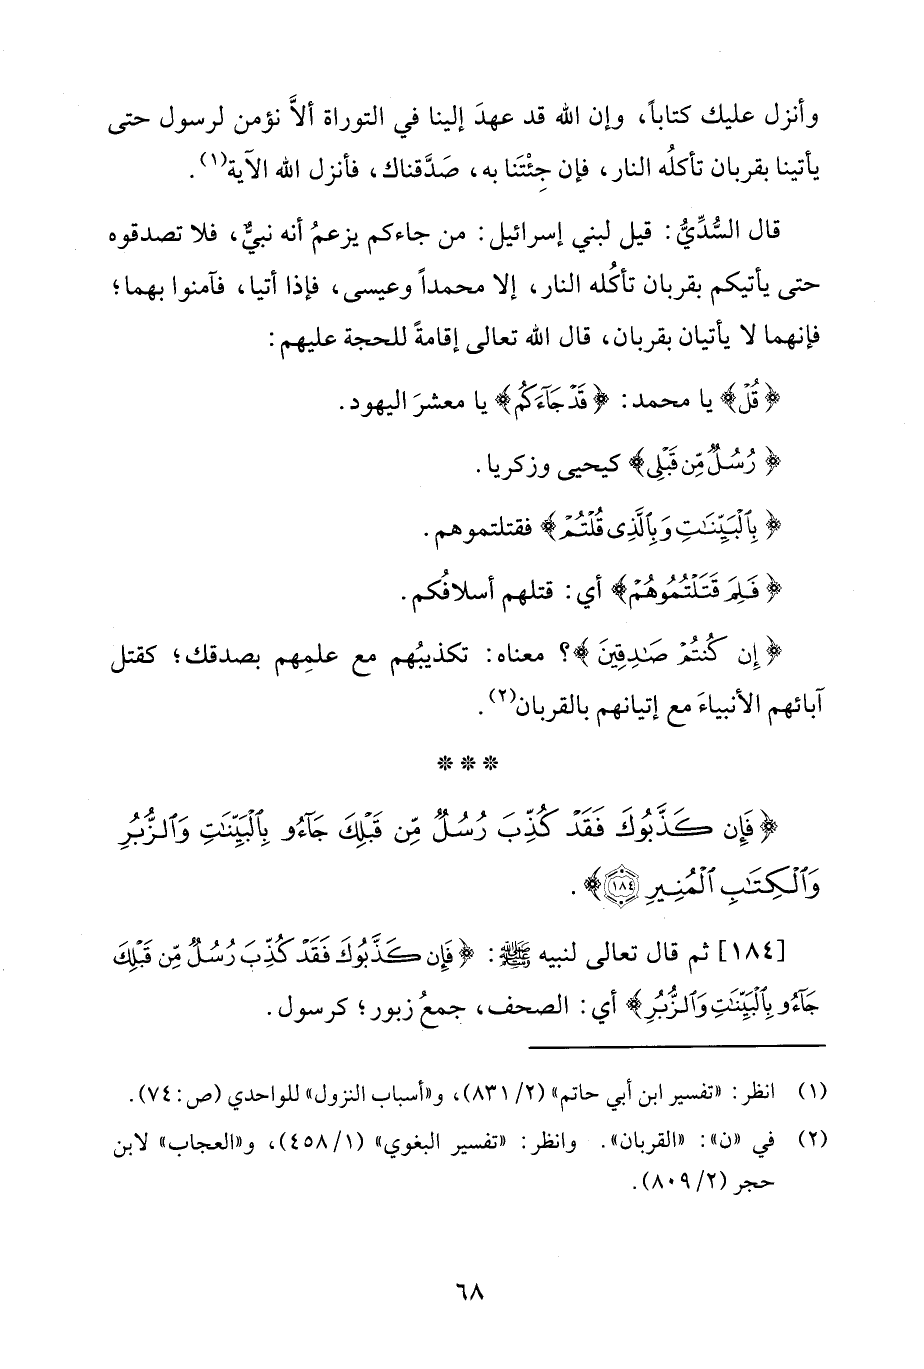 وأنزل عليك كتاباً، وإن الله قد عهدَ إلينا في التوراة ألاَّ نؤمن لرسول حتى
يأتينا بقربان تأكلُه النار، فإن جِئْتَنا به، صَدَّقناك، فأنزل الله الآية(١).
قال السُّدِّيُّ: قيل لبني إسرائيل: من جاءكم يزعمُ أنه نبيٌّ، فلا تصدقوه
حتى يأتيكم بقربان تأكُله النار، إلا محمداً وعيسى، فإذا أتيا، فآمنوا بهما؛
فإنهما لا يأتيان بقربان، قال الله تعالى إقامةً للحجة عليهم:
﴿قُلْ﴾ يا محمد: ﴿قَدْ جَآءَكُمْ﴾ يا معشرَ اليهود.
﴿رُسُلٌ مِّن قَبْلِى﴾ كيحيى وزكريا.
﴿بِٱلْبَيِّنَـٰتِ وَبِٱلَّذِى قُلْتُمْ﴾ فقتلتموهم.
﴿فَلِمَ قَتَلْتُمُوهُمْ﴾ أي: قتلهم أسلافُكم.
﴿إِن كُنتُمْ صَـٰدِقِينَ﴾؟ معناه: تكذيبُهم مع علمِهم بصدقك؛ كقتل
آبائهم الأنبياءَ مع إتيانهم بالقربان(٢).
* * *
﴿فَإِن كَذَّبُوكَ فَقَدْ كُذِّبَ رُسُلٌ مِّن قَبْلِكَ جَآءُو بِٱلْبَيِّنَـٰتِ وَٱلزُّبُرِ
وَٱلْكِتَـٰبِ ٱلْمُنِيرِ ١٨٤﴾.
[١٨٤] ثم قال تعالى لنبيه ﷺ: ﴿فَإِن كَذَّبُوكَ فَقَدْ كُذِّبَ رُسُلٌ مِّن قَبْلِكَ
جَآءُو بِٱلْبَيِّنَـٰتِ وَٱلزُّبُرِ﴾ أي: الصحف، جمعُ زبور؛ كرسول.
(١) انظر: «تفسير ابن أبي حاتم» (٢/ ٨٣١)، و«أسباب النزول» للواحدي (ص: ٧٤).
(٢) في «ن»: «القربان». وانظر: «تفسير البغوي» (١/ ٤٥٨)، و«العجاب» لابن
حجر (٢/ ٨٠٩).
٦٨